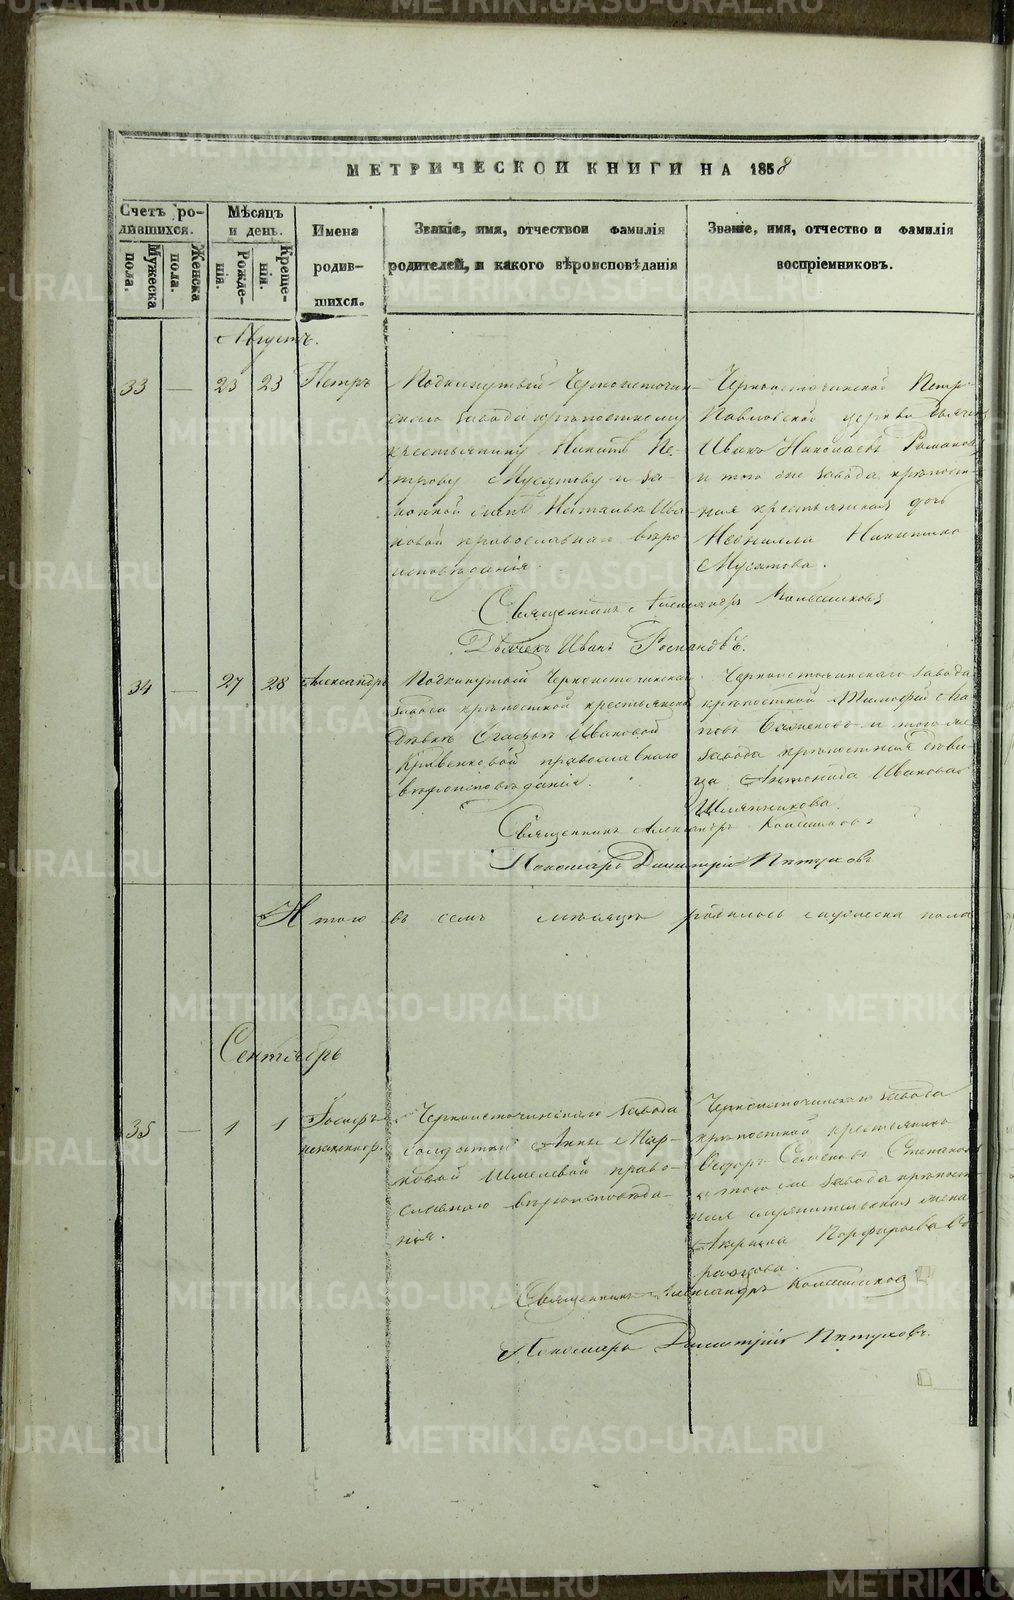 МЕТРИЧЕСКОИ КНИГИ НА 1858
Счетъ ро-
дившихся.
Мужеска
пола.
Женска
пола.
Мѣсяцъ
и день.
Рожде-
нія.
Креще-
нія.
Имена
родив-
шихся.
Званіе, имя, отчествои фамилія
родителей, и какого вѣроисповѣданія
Званіе, имя, отчество и фамилія
воспріемниковъ.
Августъ.
33 — 23 23 Петръ
Подкинутый Черноисточин-
скаго завода крѣпостному
крестьянину Никитѣ Пе-
трову Мусатову и за-
конной женѣ Натальѣ Ива
новой православнаго вѣро
исповѣданія.
Черноисточинской Петро
Павловской церкви дьячекъ
Иванъ Николаевъ Романовъ
и того же завода крѣпост-
ная крестьянская дочь
Никитина
Мусатова.
Священникъ Александръ Колесниковъ
Дьячекъ Иванъ Романовъ.
34 — 27 28 Александръ
Подкинутый Черноисточинска
завода крѣпостной крестьянской
дѣвкѣ Ивановой
Кривенковой православнаго
вѣроисповѣданія.
Черноисточинскаго завода
крѣпостной Тимофей
и того же
завода крѣпостная дѣви
ца Антонида Иванова
Шляпникова.
Священникъ Александръ Колесниковъ
Пономарь Димитрій Пѣтуховъ
Итого въ семъ мѣсяцѣ родилось мужеска пола
Сентябрь
35 — 1 1 Іосифъ
незаконнор.
Черноисточинскаго завода
солдатки Анны Мар-
ковой Шмелевой право-
славнаго вѣроисповѣда-
нія.
Черноисточинскаго завода
крѣпостной крестьянинъ
Ѳедоръ Семеновъ Степановъ
и того же завода крѣпост-
ная служительская жена
Акулина Порфирьева Об
разцова.
Священникъ Александръ Колесниковъ
Пономарь Димитрій Пѣтуховъ.
METRIKI.GASO-URAL.RU